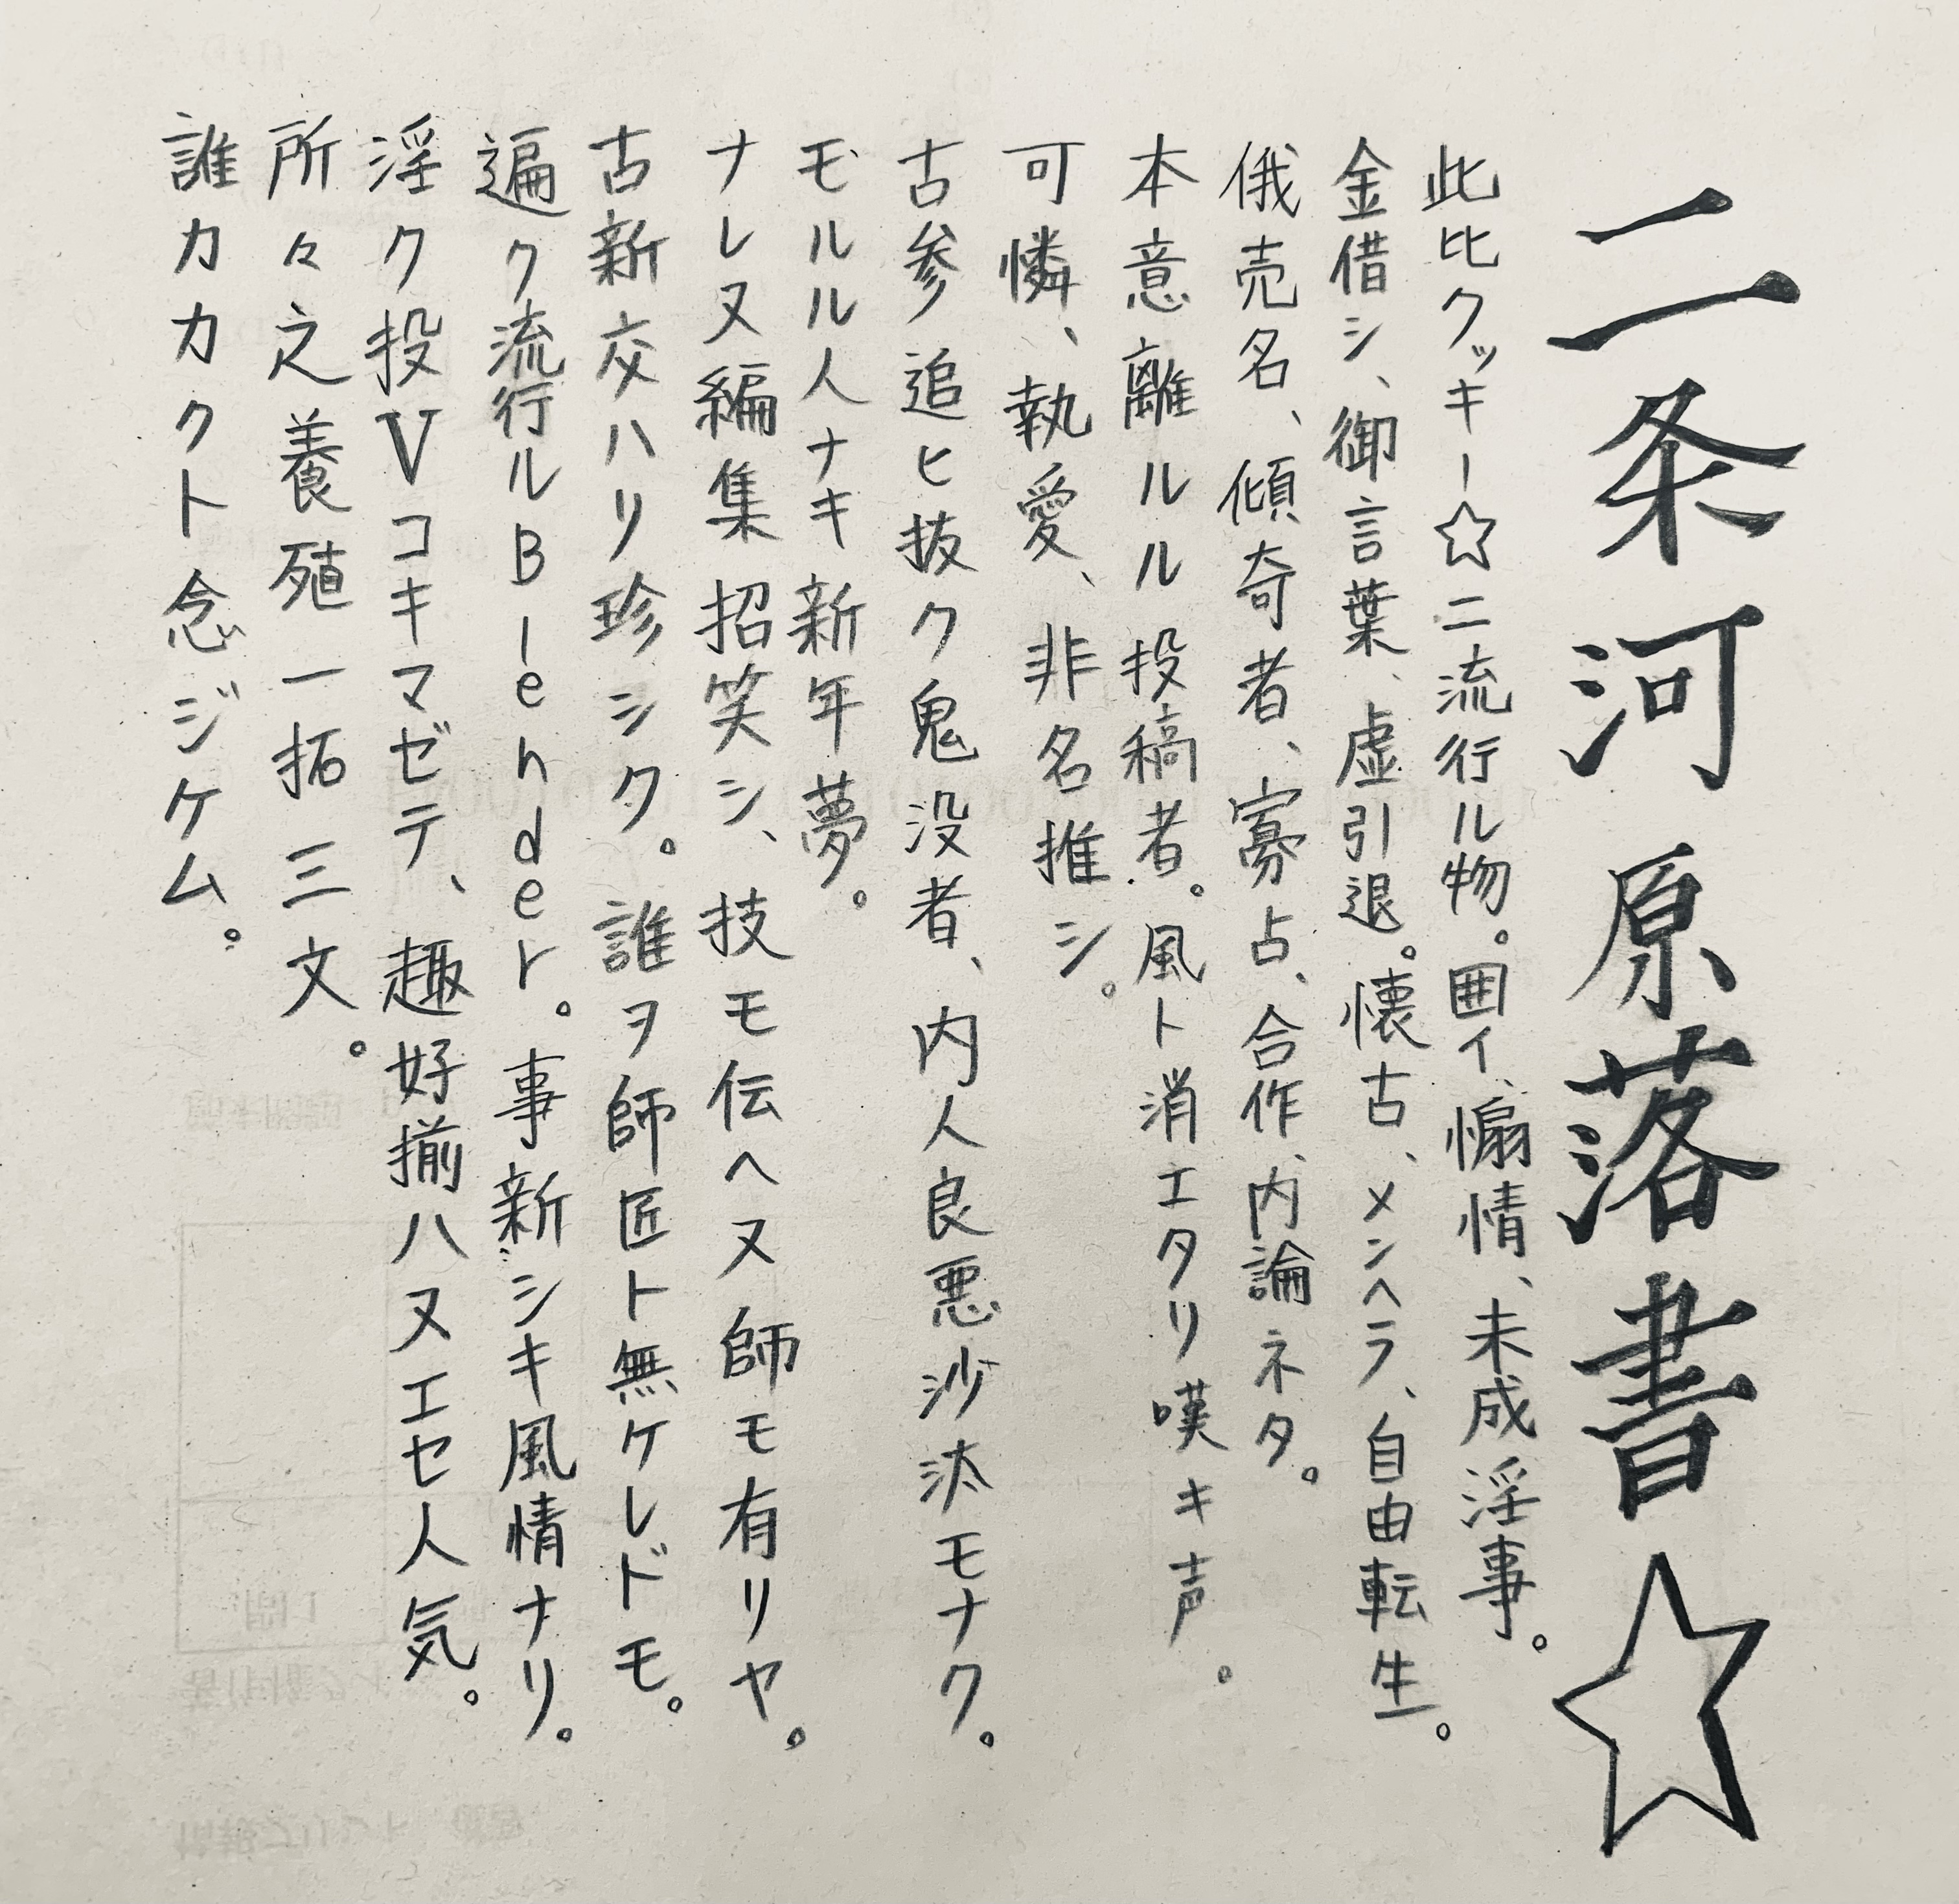 二条河原落書☆
此比クッキー☆ニ流行ル物。囲イ、煽情、未成淫事。
金借シ、御言葉、虚引退。懐古、メンヘラ、自由転生。
俄売名、傾奇者、寡占、合作、内論ネタ。
本意離ルル投稿者。風ト消エタリ嘆キ声。
可憐、執愛、非名推シ。
古参追ヒ抜ク鬼没者、内人良悪沙汰モナク。
モルル人ナキ新年夢。
ナレヌ編集招笑シ、技モ伝ヘヌ師モ有リヤ。
古新交ハリ珍シク。誰ヲ師匠ト無ケレドモ。
遍ク流行ルBlender。事新シキ風情ナリ。
淫ク投Vコキマゼテ、趣好揃ハヌエセ人気。
所々之養殖一拓三文。
誰カカクト念ジケム。